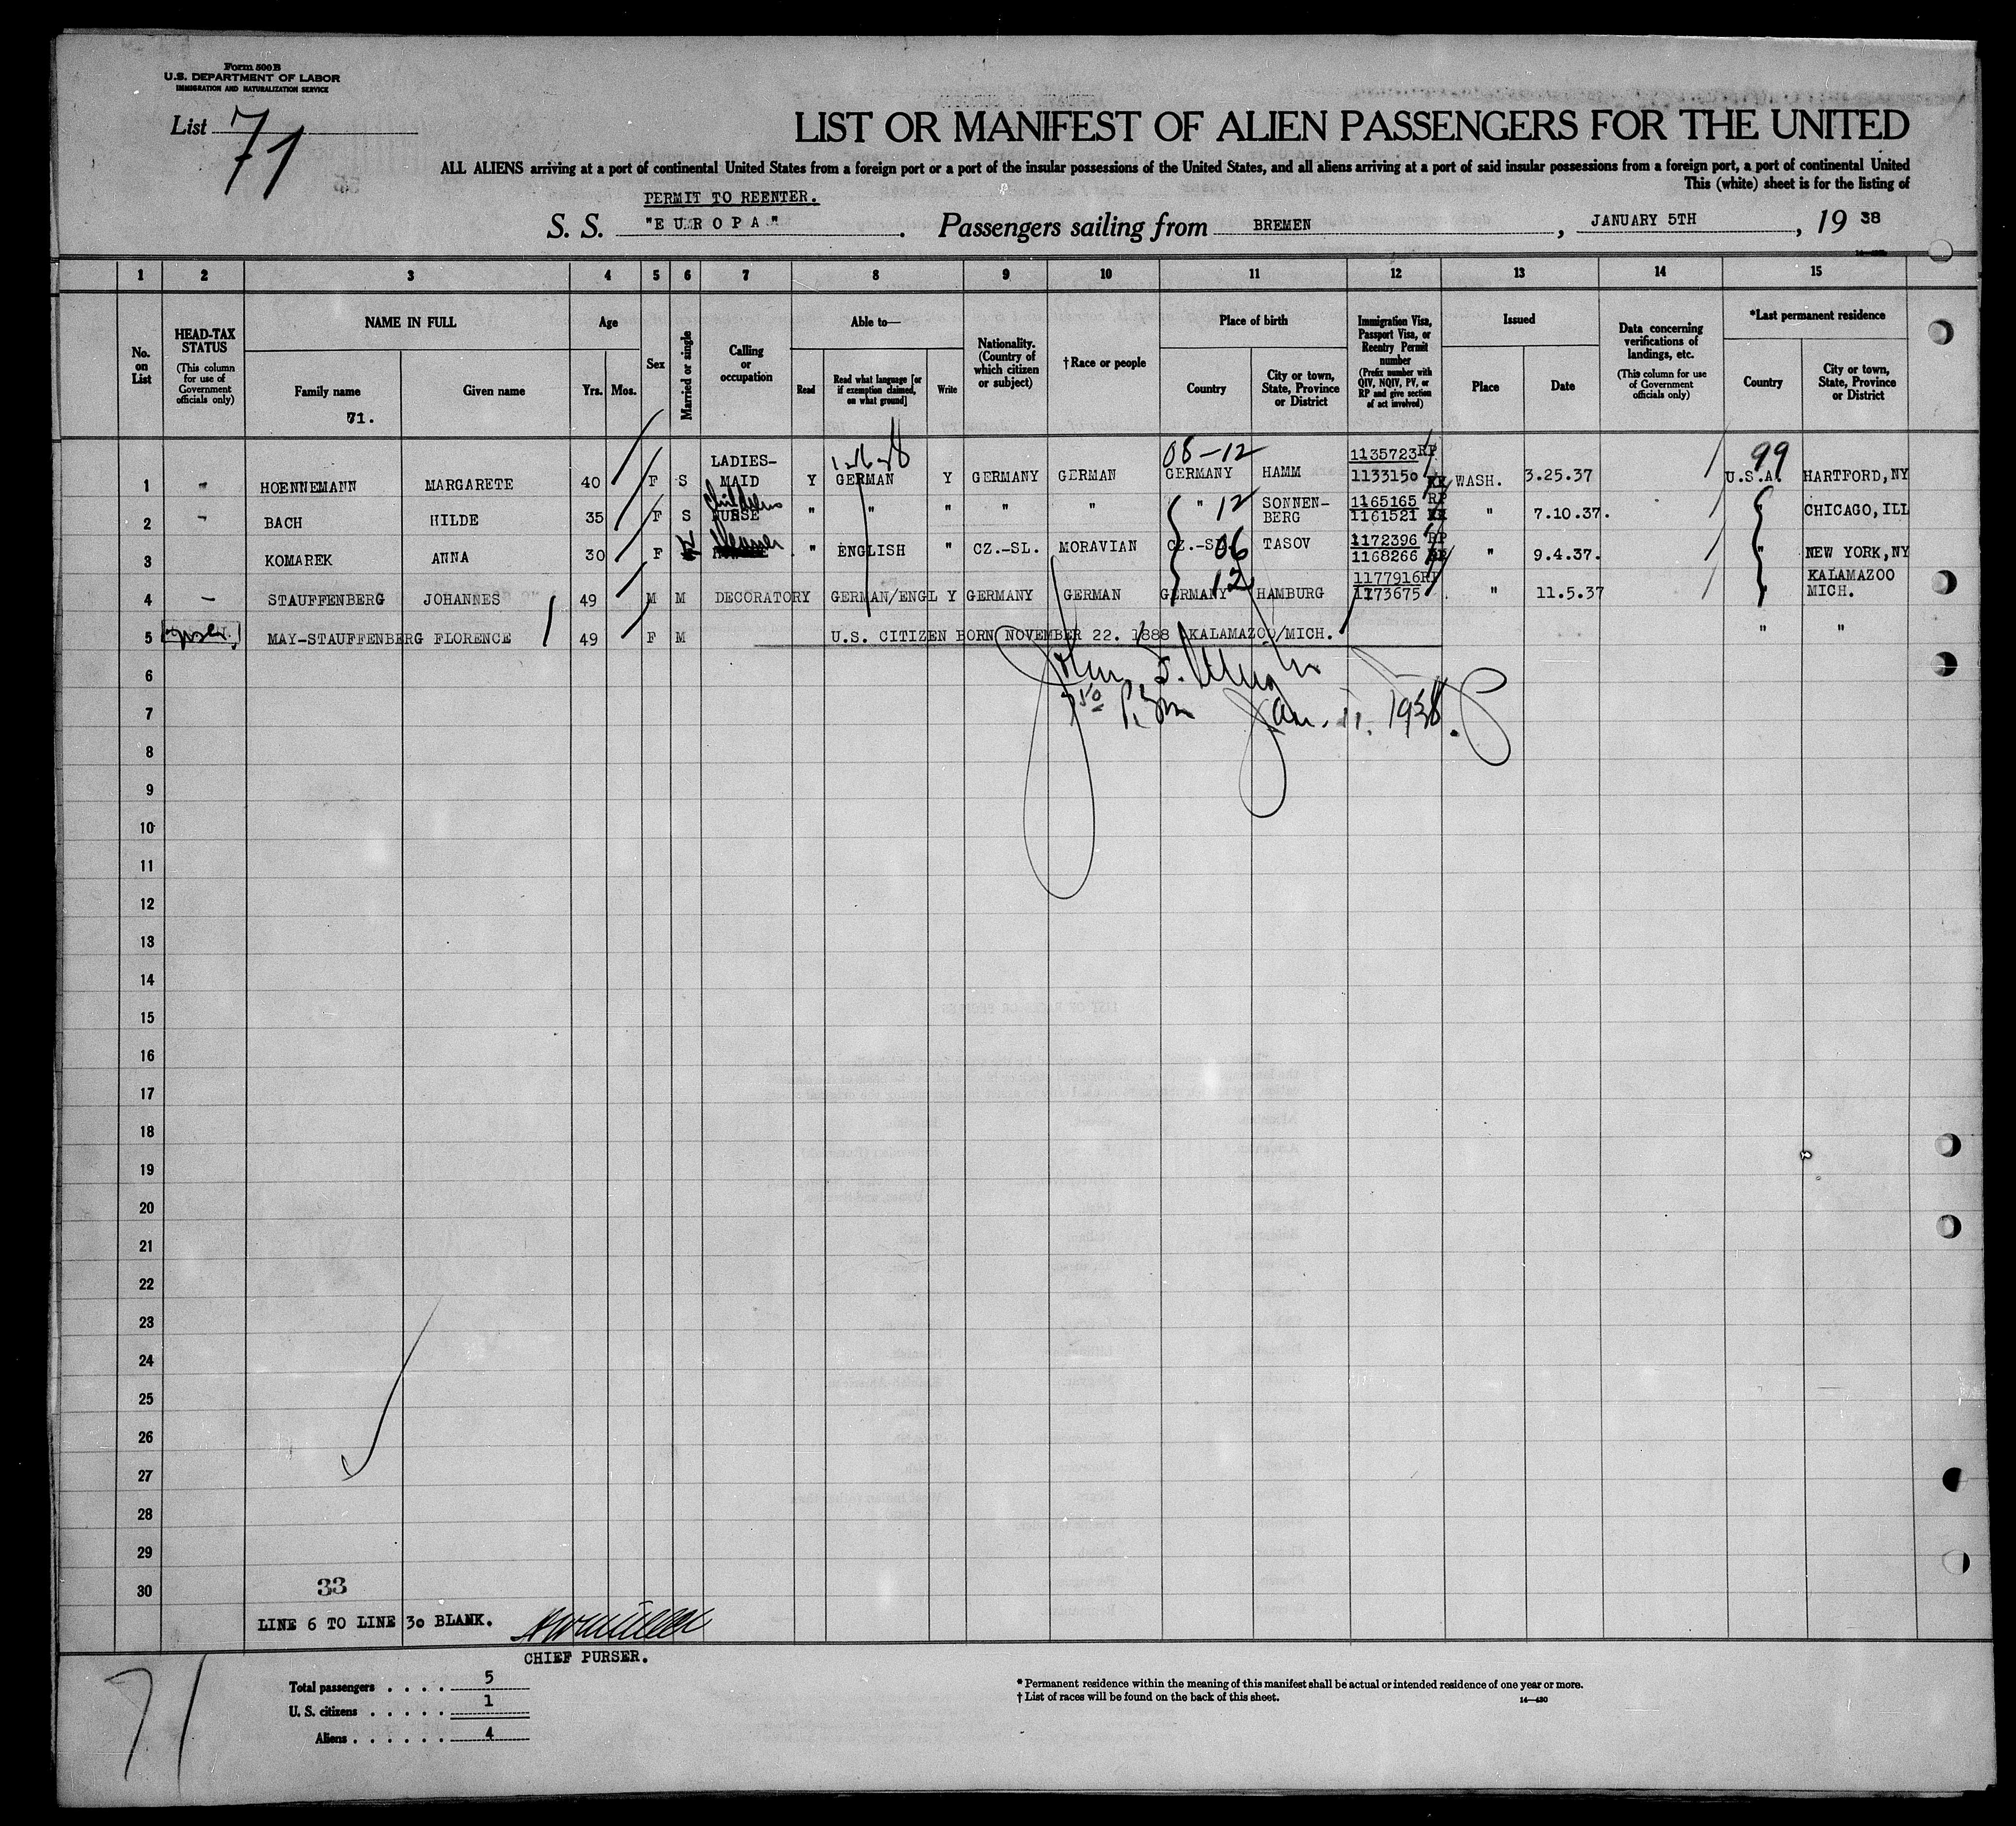 Form 500B
U.S. DEPARTMENT OF LABOR
IMMIGRATION AND NATURALIZATION SERVICE
List 71
LIST OR MANIFEST OF ALIEN PASSENGERS FOR THE UNITED
ALL ALIENS arriving at a port of continental United States from a foreign port or a port of the insular possessions of the United States, and all aliens arriving at a port of said insular possessions from a foreign port, a port of continental United
This (white) sheet is for the listing of
PERMIT TO REENTER.
S. S. "EUROPA". Passengers sailing from BREMEN, JANUARY 5TH, 19 38
1 2 3 4 5 6 7 8 9 10 11 12 13 14 15
No. on List
HEAD-TAX STATUS
(This column for use of Government officials only)
NAME IN FULL
Family name
71.
Given name
Age
Yrs. Mos.
Sex
Married or single
Calling or occupation
Able to—
Read
Read what language [or if exemption claimed, on what ground]
Write
Nationality. (Country of which citizen or subject)
†Race or people
Place of birth
Country
City or town, State, Province or District
Immigration Visa, Passport Visa, or Reentry Permit number
(Prefix number with QIV, NQIV, PV, or RP and give section of act involved)
Issued
Place
Date
Data concerning verifications of landings, etc.
(This column for use of Government officials only)
*Last permanent residence
Country
City or town, State, Province or District
08-12 1135723 RP 99
1 - HOENNEMANN MARGARETE 40 F S LADIES-MAID Y GERMAN Y GERMANY GERMAN GERMANY HAMM 1133150 WASH. 3.25.37 U.S.A. HARTFORD, NY
2 - BACH HILDE 35 F S Childrens NURSE " " " " " " 12 SONNEN-BERG 1165165 RP 1161521 " 7.10.37. " CHICAGO, ILL
3 KOMAREK ANNA 30 F " ENGLISH " CZ.-SL. MORAVIAN CZ.-SL. 06 TASOV 1172396 RP 1168266 " 9.4.37. " NEW YORK, NY
4 - STAUFFENBERG JOHANNES 49 M M DECORATOR Y GERMAN/ENGL Y GERMANY GERMAN GERMANY 12 HAMBURG 1177916 RP 1173675 " 11.5.37 " KALAMAZOO MICH.
5 MAY-STAUFFENBERG FLORENCE 49 F M U.S. CITIZEN BORN NOVEMBER 22. 1888 KALAMAZOO/MICH. " "
6
7 Jan. 11. 1938.
8
9
10
11
12
13
14
15
16
17
18
19
20
21
22
23
24
25
26
27
28
29
30
33
LINE 6 TO LINE 30 BLANK.
CHIEF PURSER.
71
Total passengers . . . . 5
U. S. citizens . . . . . 1
Aliens . . . . . . 4
* Permanent residence within the meaning of this manifest shall be actual or intended residence of one year or more.
† List of races will be found on the back of this sheet.
14—430